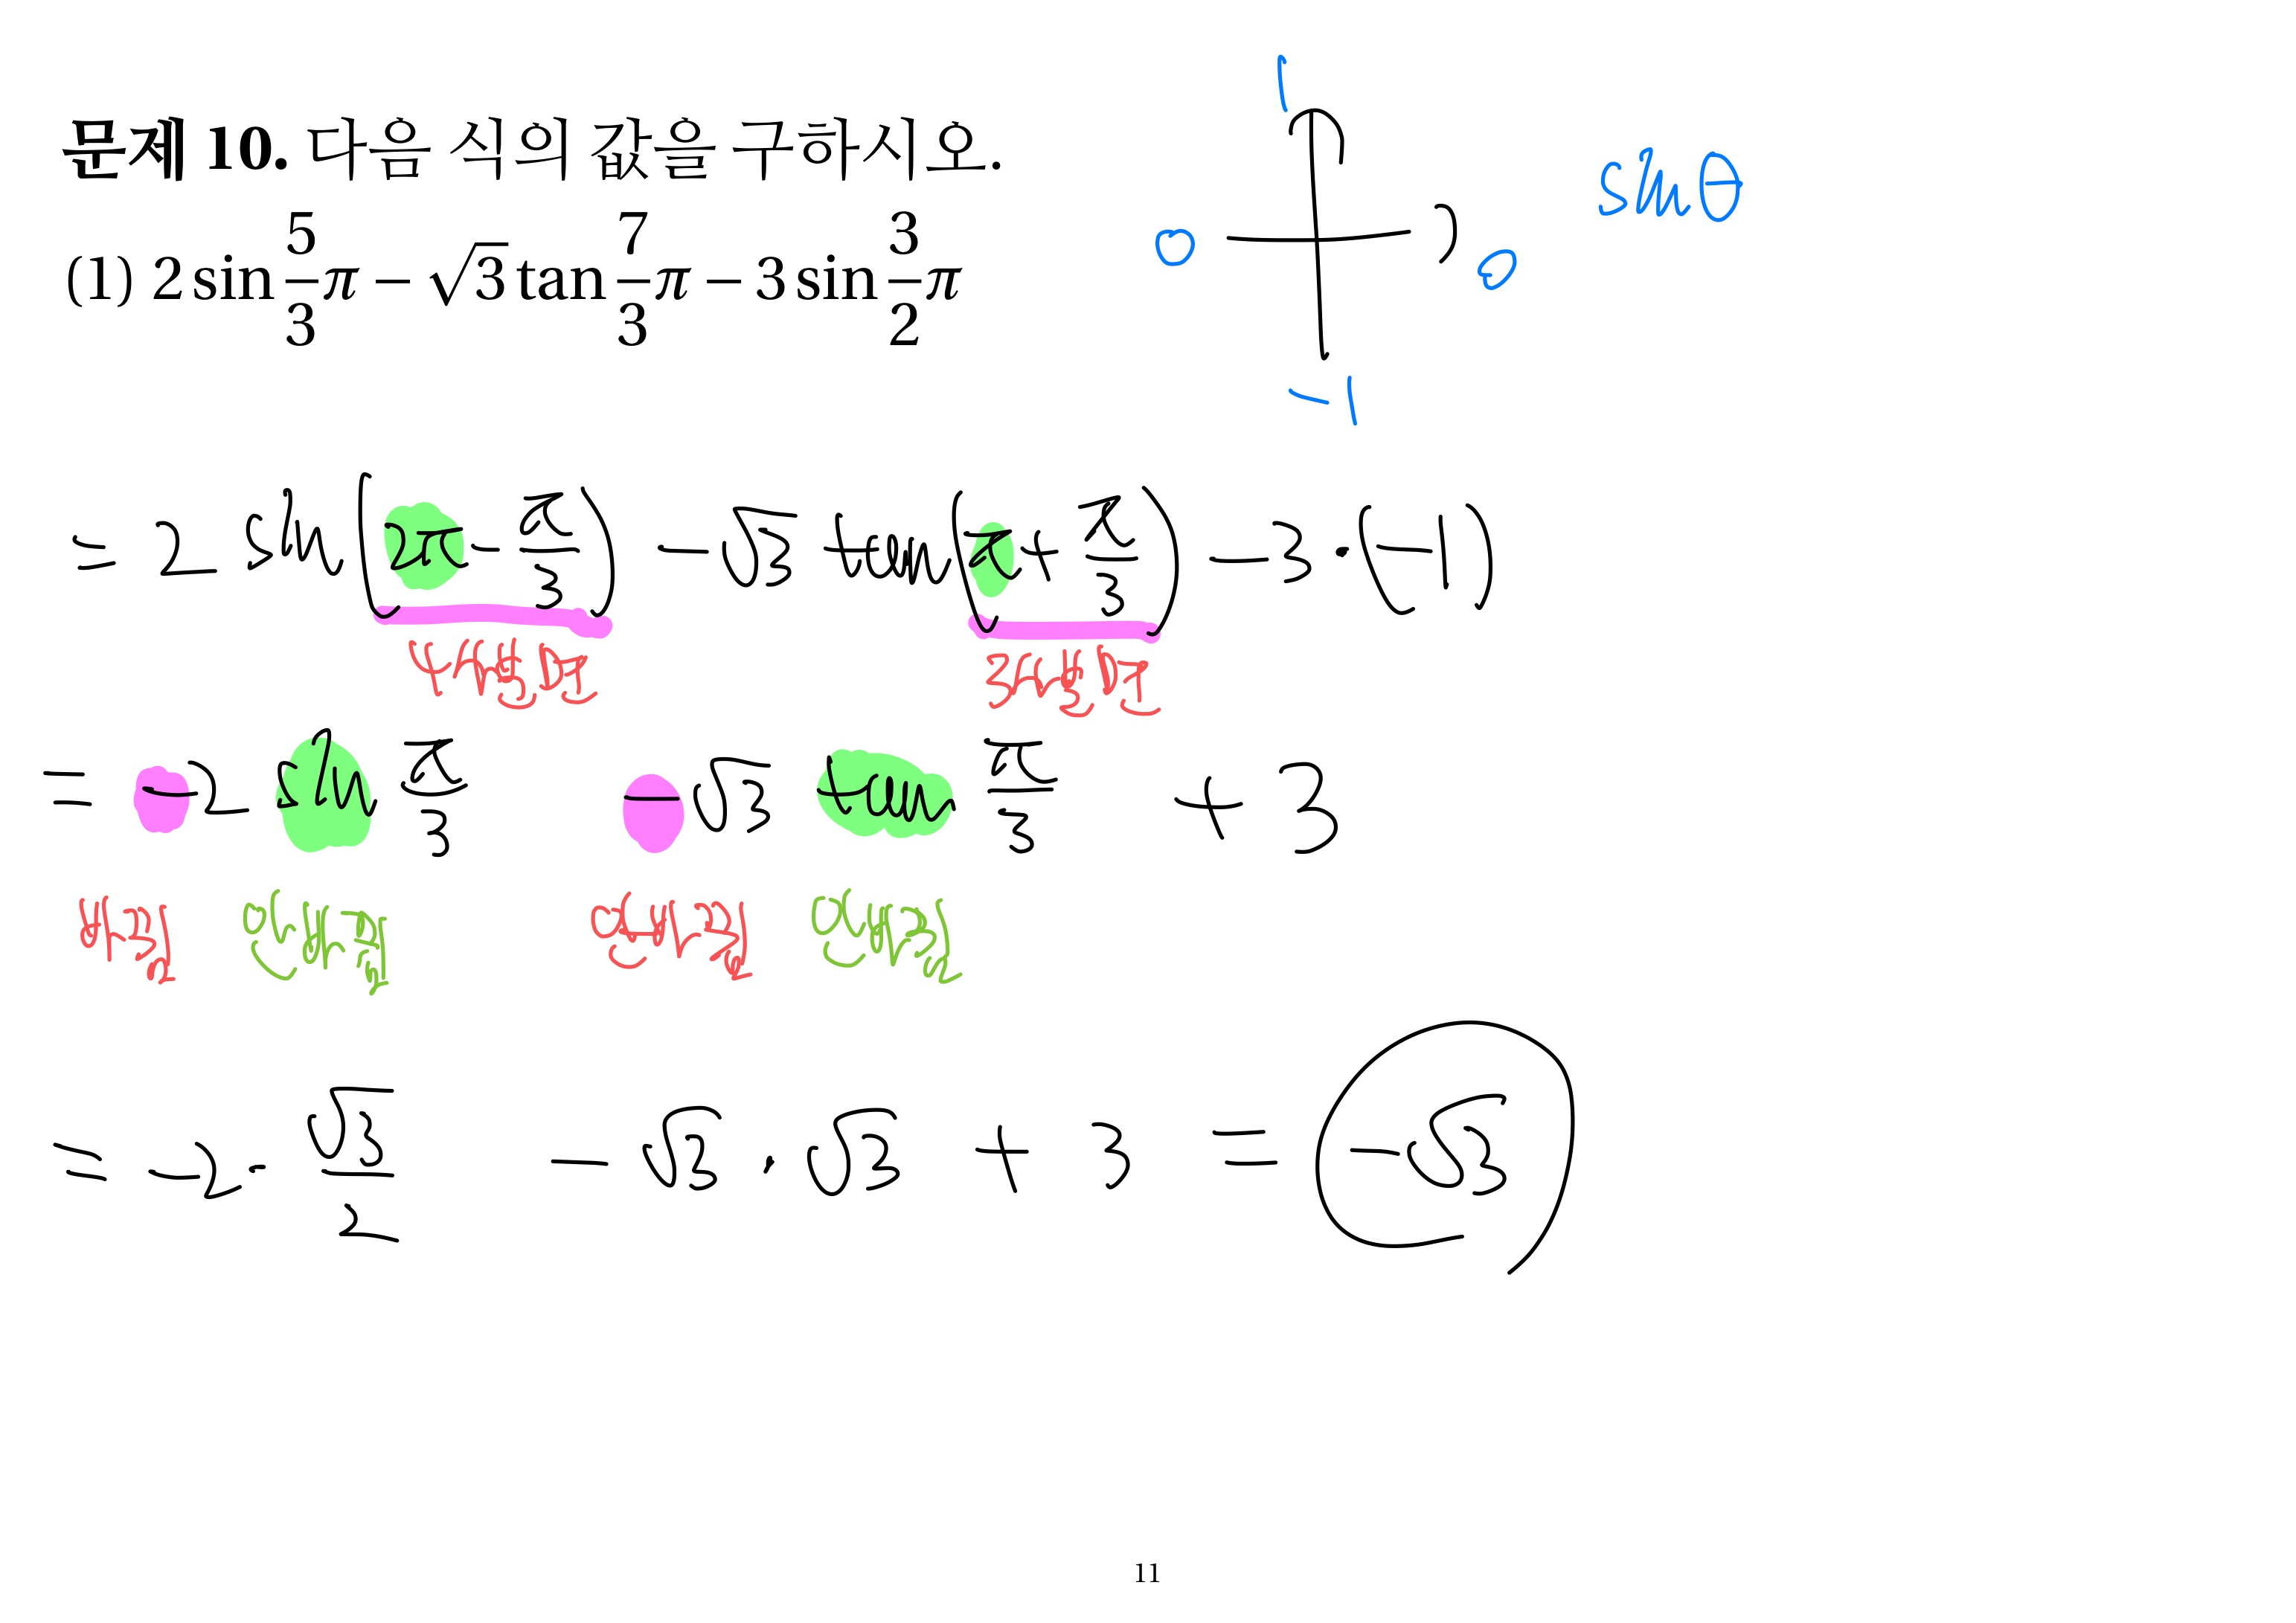 문제 10. 다음 식의 값을 구하시오.
(1) 2 sin 5/3 π − √3 tan 7/3 π − 3 sin 3/2 π
1
0
0
-1
sin θ
= 2 sin(2π - π/3) - √3 tan(π + π/3) - 3·(-1)
4사분면
3사분면
= -2 sin π/3 - √3 tan π/3 + 3
바뀜
안바뀜
안바뀜
안바뀜
= -2· √3/2 - √3·√3 + 3 = -√3
11